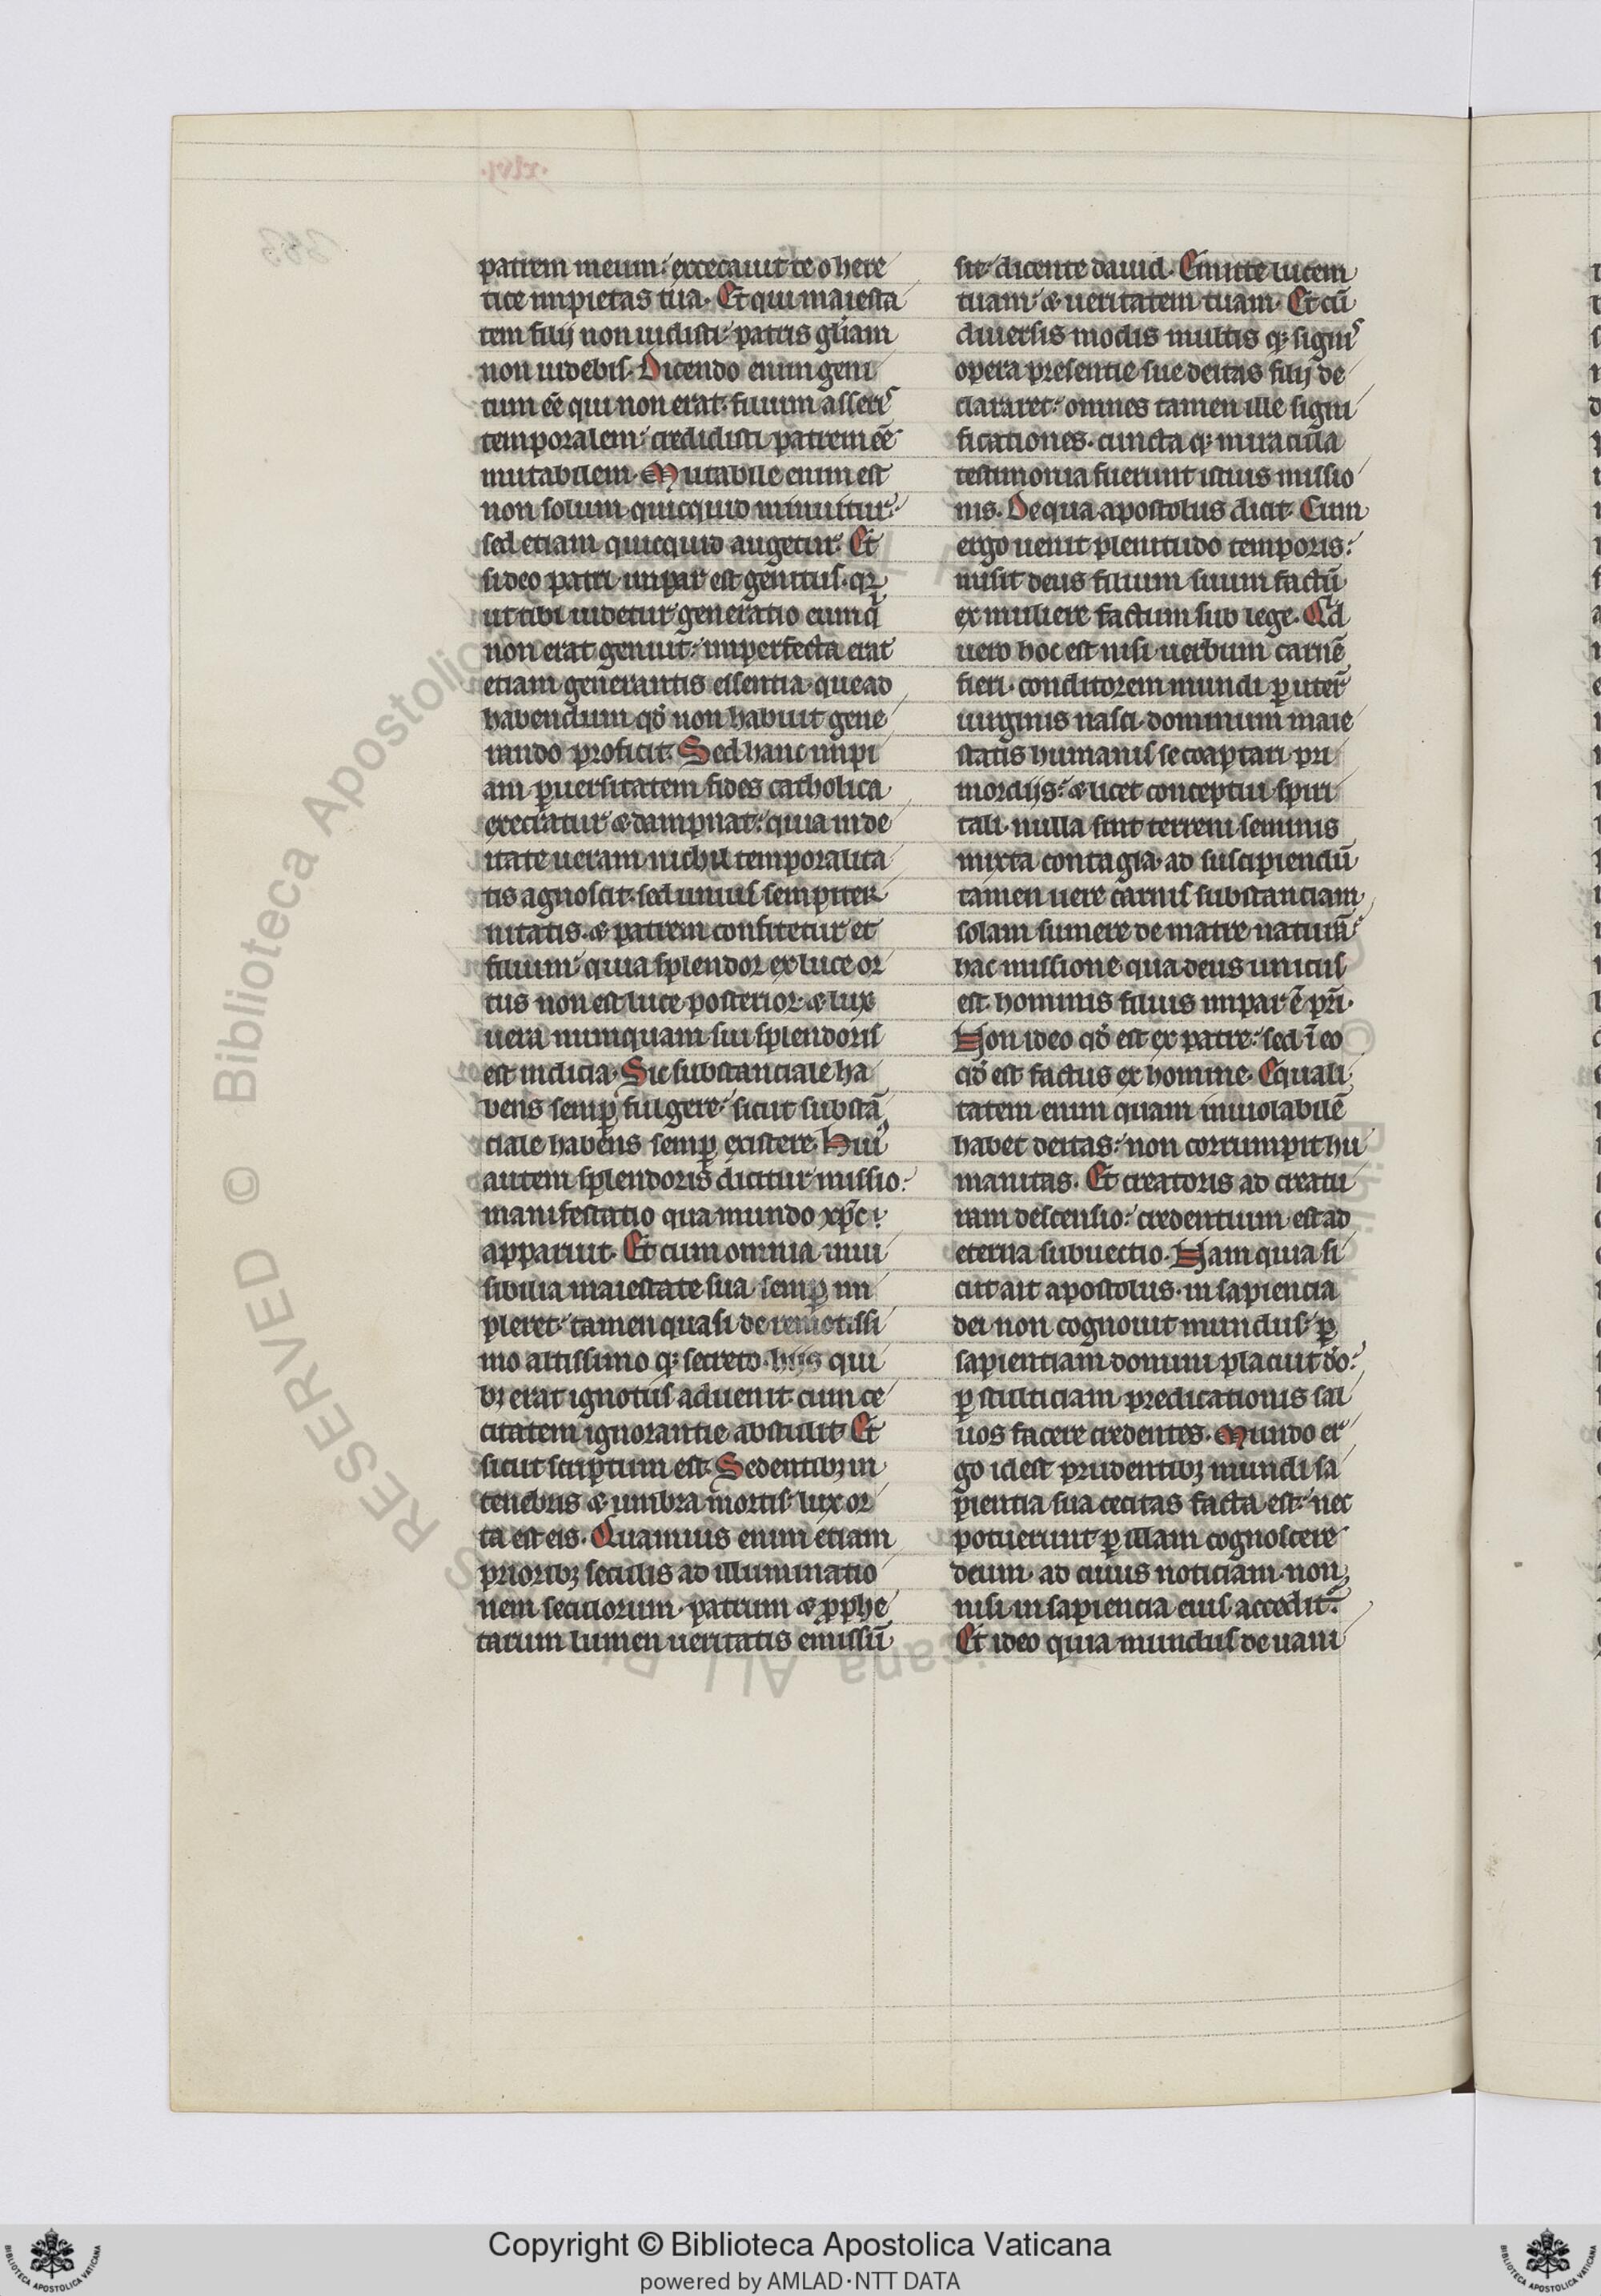 patrem meum: excecauit te o here
tice impietas tua. Et qui maiesta
tem filij non uidisti: patris gl̄iam
non uidebis. Dicendo enim geni
tum eē qui non erat. filium asserēs
temporalem: credidisti patrem eē
mutabilem. Mutabile enim est
non solum quicquid minuitur:
sed etiam quicquid augetur. Et
si deo patri impar est genitus. qꝛ
ut tibi uidetur generatio eum q̄
non erat genuit: imperfecta erat
etiam generantis essentia. que ad
habendum qd̓ non habuit gene
rando proficit. Sed hanc impi
am ꝑuersitatem fides catholica
execratur ⁊ dampnat: quia in de
itate ueram nichil temporalita
tis agnoscit. sed unius sempiter
nitatis. ⁊ patrem confitetur et
filium: quia splendor ex luce or
tus non est luce posterior. ⁊ lux
uera numquam sui splendoris
est indicia. Sic substanciale ha
bens semꝑ fulgere: sicut substā
ciale habens semꝑ existere. Huiꝰ
autem splendoris dicitur missio:
manifestatio qua mundo xp̄c
apparuit. Et cum omnia inui
sibilia maiestate sua semꝑ im
pleret: tamen quasi de remotissi
mo altissimo qꝫ secreto. hijs qui
bꝫ erat ignotus aduenit. cum ce
citatem ignorantie abstulit. Et
sicut scriptum est. Sedentibꝫ in
tenebris ⁊ umbra mortis. lux or
ta est eis. Quamuis enim etiam
prioribꝫ seculis ad illuminatio
nem sctiorum. patrum ⁊ ꝓphe
tarum lumen ueritatis emissū
sit. dicente dauid. Emitte lucem
tuam: ⁊ ueritatem tuam. Et cū
diuersis modis multis qꝫ signis
opera presentie sue deitas filij de
clararet: omnes tamen ille signi
ficationes. cuncta qꝫ miracula
testimonia fuerunt istius missio
nis. De qua apostolus dicit. Cum
ergo uenit plenitudo temporis:
misit deus filium suum factū
ex muliere factum sub lege. Qͥd
uero hoc est nisi uerbum carnē
fieri. conditorem mundi ꝑ uterū
uirginis nasci. dominum maie
statis humanis se coaptari pri
mordijs: ⁊ licet conceptui spiri
tali. nulla sint terreni seminis
mixta contagia. ad suscipiendū
tamen uere carnis substanciam
solam sumere de matre naturā:
hac missione qua deus unitus
est. hominis filius impar ē pr̄i.
Non ideo qd̓ est ex patre: sed ī eo
qd̓ est factus ex homine. Equali
tatem enim quam inuiolabilē
habet deitas: non corrumpit hu
manitas. Et creatoris ad creatu
ram descensio: credentium est ad
eterna subuectio. Nam quia si
cut ait apostolus. in sapiencia
dei non cognouit mundus. ꝑ
sapientiam domini placuit d̓o:
ꝑ stulticiam predicationis sal
uos facere credentes. Mundo er
go id est prudentibꝫ mundi sa
pientia sua cecitas facta est: nec
potuerunt ꝑ illam cognoscere
deum. ad cuius noticiam non
nisi in sapiencia eius acceditꝰ.
Et ideo quia mundus de uani
Copyright © Biblioteca Apostolica Vaticana
powered by AMLAD·NTT DATA